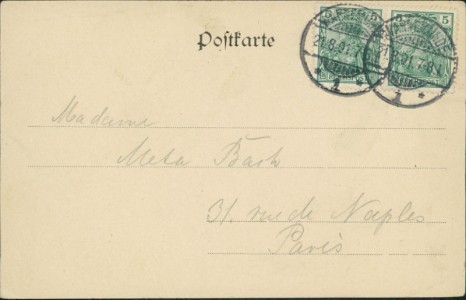 Postkarte
5
21.8.01.7-8N
1
Madame
Meta Bach
31. rue de Naples
Paris